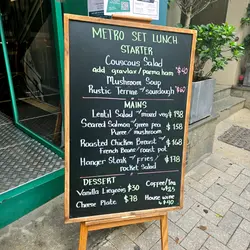 METRO SET LUNCH
STARTER
Couscous Salad
add gravlax / parma ham +$40
Mushroom Soup
Rustic Terrine +sourdough +$60
MAINS
Lentil Salad + round veg $138
Seared Salmon + green pea $158
Puree / mushroom
Roasted Chicken Breast $168
French Beans / roast potat
Hanger Steak + fries / $178
rocket Salad
DESSERT
Vanilla Liegeois $30
Cheese Plate $78
Coffee/Tea
+$25
House wine